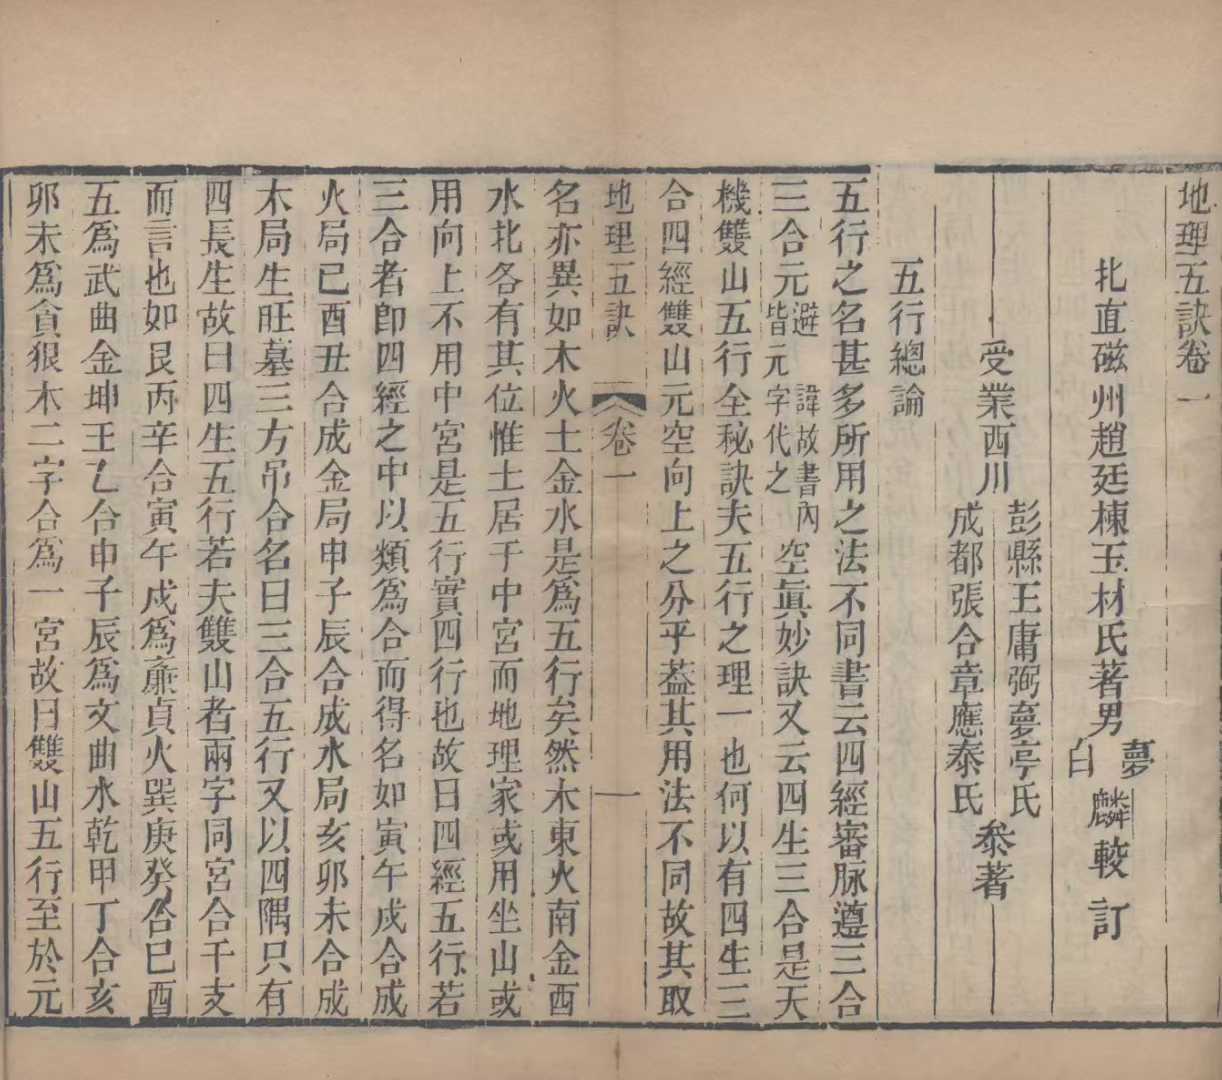 地理五訣卷一
北直磁州趙廷棟玉材氏著男夢白麟較訂
受業西川彭縣王庸弼夢亭氏成都張合章應泰氏叅著
五行總論
五行之名甚多所用之法不同書云四經審脉遵三合
三合元避諱故書內皆元字代之空眞妙訣又云四生三合是天
機雙山五行全秘訣夫五行之理一也何以有四生三
合四經雙山元空向上之分乎葢其用法不同故其取
地理五訣 卷一 一
名亦異如木火土金水是爲五行矣然木東火南金西
水北各有其位惟土居于中宮而地理家或用坐山或
用向上不用中宮是五行實四行也故曰四經五行若
三合者卽四經之中以類爲合而得名如寅午戌合成
火局巳酉丑合成金局申子辰合成水局亥卯未合成
木局生旺墓三方吊合名曰三合五行又以四隅只有
四長生故曰四生五行若夫雙山者兩字同宮合千支
而言也如艮丙辛合寅午戌爲廉貞火巽庚癸合巳酉
五爲武曲金坤王乙合申子辰爲文曲水乾甲丁合亥
卯未爲貪狠木二字合爲一宮故曰雙山五行至於元